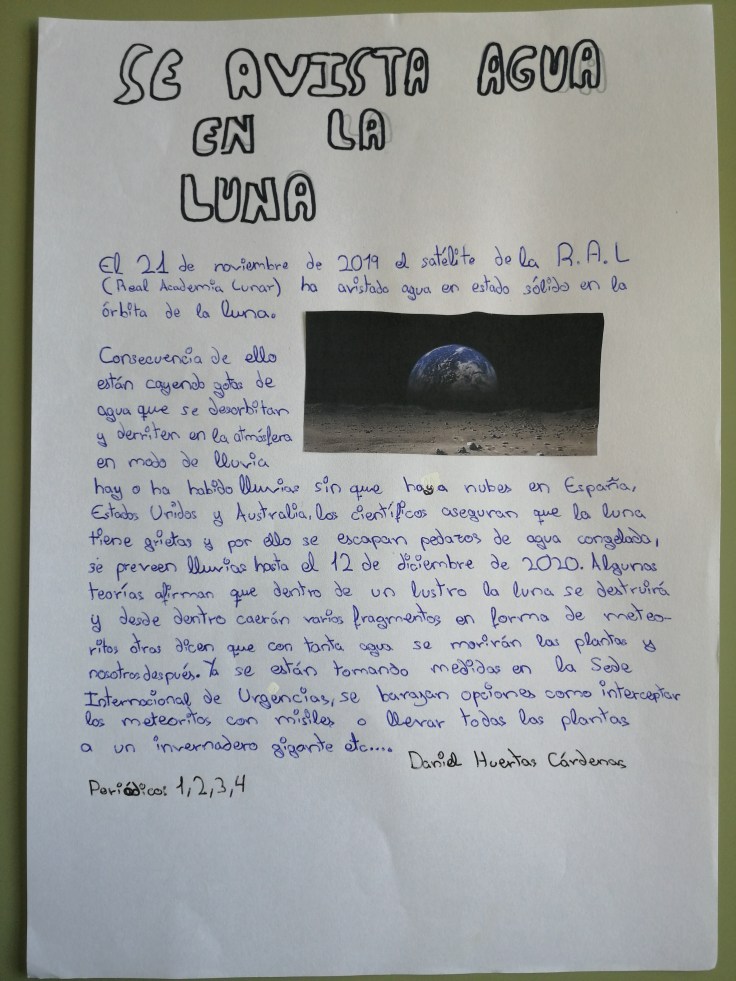 SE AVISTA AGUA
EN LA
LUNA
El 21 de noviembre de 2019 el satélite de la R.A.L
(Real Academia Lunar) ha avistado agua en estado sólido en la
órbita de la luna.
Consecuencia de ello
están cayendo gotas de
agua que se desorbitan
y derriten en la atmósfera
en modo de lluvia
hay o ha habido lluvias sin que haya nubes en España,
Estados Unidos y Australia, los científicos aseguran que la luna
tiene grietas y por ello se escapan pedazos de agua congelada,
se preveen lluvias hasta el 12 de diciembre de 2020. Algunas
teorías afirman que dentro de un lustro la luna se destruirá
y desde dentro caerán varios fragmentos en forma de meteo-
ritos otras dicen que con tanta agua se morirán las plantas y
nosotros después. Ya se están tomando medidas en la Sede
Internacional de Urgencias, se barajan opciones como interceptar
los meteoritos con misiles o llevar todas las plantas
a un invernadero gigante etc....
Daniel Huertas Cárdenas
Periódico: 1,2,3,4